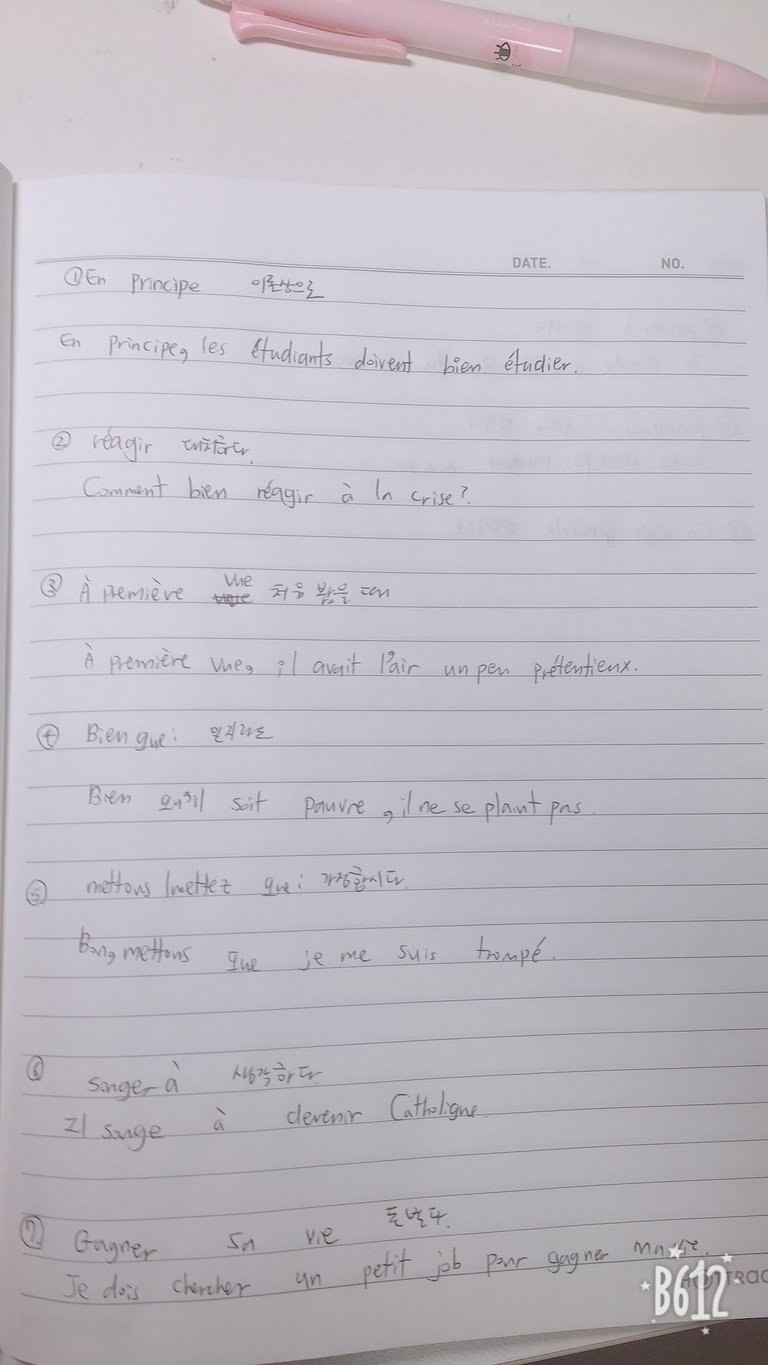 DATE. NO.
① En principe 이론상으로
En principe, les étudiants doivent bien étudier.
② réagir 대처하다.
Comment bien réagir à la crise?
③ À première vue 처음 봤을 때
À première vue, il avait l'air un peu prétentieux.
④ Bien que: 일지라도
Bien qu'il soit pauvre, il ne se plaint pas.
⑤ mettons/mettez que: 가정합시다.
Bon, mettons que je me suis trompé.
⑥ Songer à 생각하다.
Il songe à devenir Catholique.
⑦ Gagner sa vie 돈 벌다.
Je dois chercher un petit job pour gagner ma vie.
B612